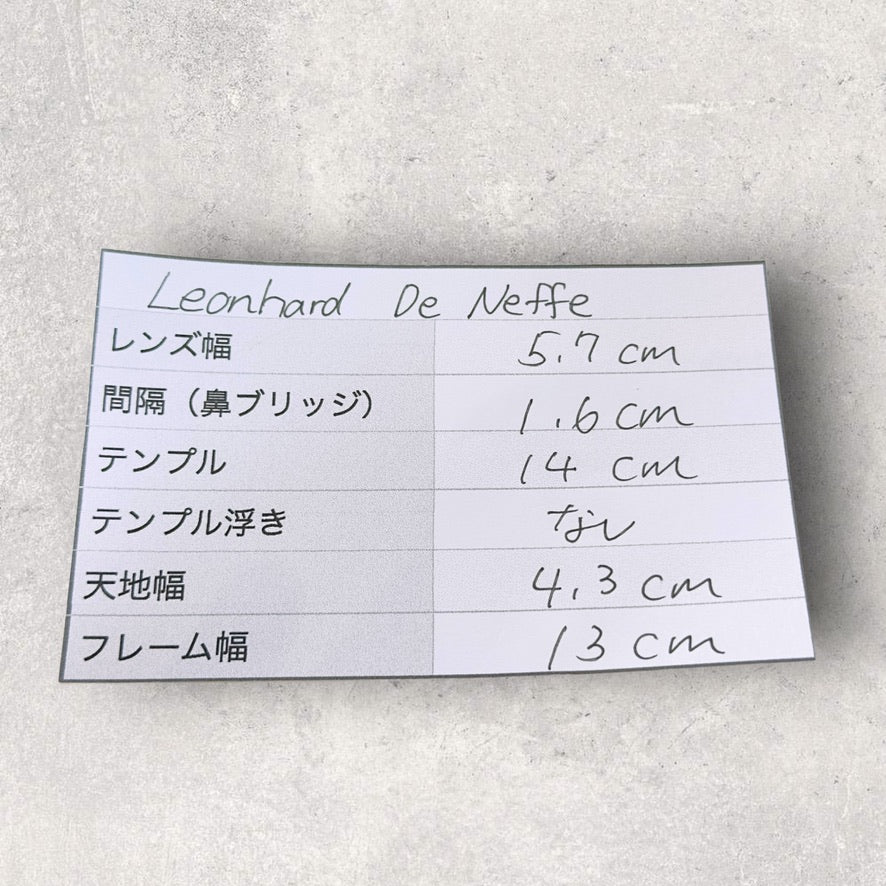 Leonhard De Neffe
レンズ幅 5.7 cm
間隔（鼻ブリッジ） 1.6 cm
テンプル 14 cm
テンプル浮き なし
天地幅 4.3 cm
フレーム幅 13 cm